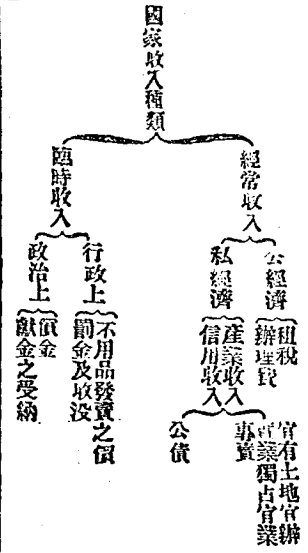 國家收入種類
經常收入
公經濟
租稅
辦理費
私經濟
產業收入
官有土地官辦
實業獨占官業
專賣
信用收入
公債
臨時收入
行政上
不用品發賣之價
罰金及收沒
政治上
償金
獻金之受納